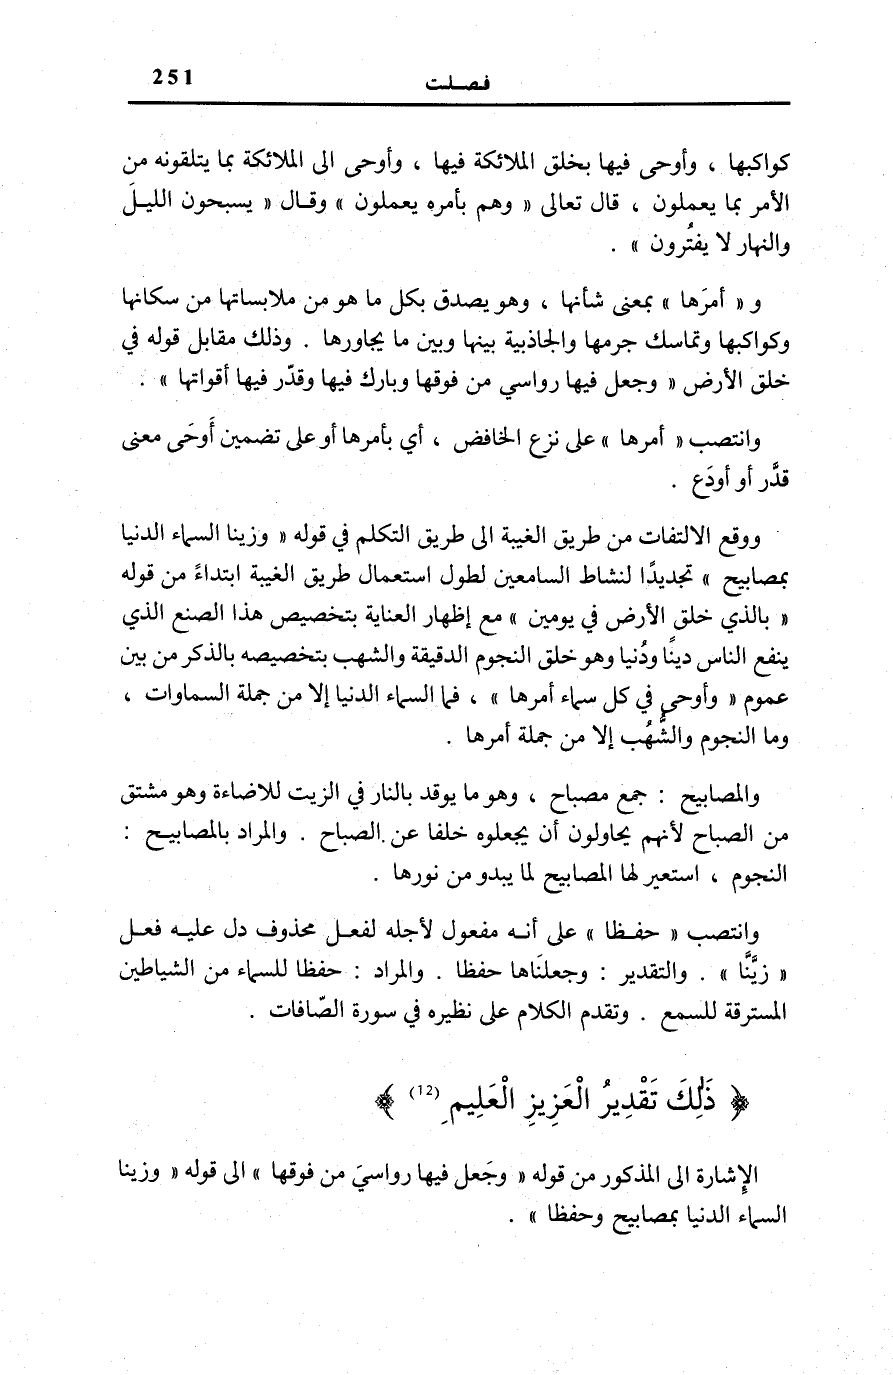 251
فـصـــلـت
كواكبها ، وأوحى فيها بخلق الملائكة فيها ، وأوحى الى الملائكة بما يتلقونه من
الأمر بما يعملون ، قال تعالى « وهم بأمره يعملون » وقـال « يسبحون الليـلَ
والنهار لا يفتُرون » .
و « أمرَها » بمعنى شأنها ، وهو يصدق بكل ما هو من ملابساتها من سكانها
وكواكبها وتماسك جرمها والجاذبية بينها وبين ما يجاورها . وذلك مقابل قوله في
خلق الأرض « وجعل فيها رواسي من فوقها وبارك فيها وقدّر فيها أقواتها » .
وانتصب « أمرها » على نزع الخافض ، أي بأمرها أو على تضمين أَوحَى معنى
قدَّر أو أودَع .
ووقع الالتفات من طريق الغيبة الى طريق التكلم في قوله « وزينا السماء الدنيا
بمصابيح » تجديدًا لنشاط السامعين لطول استعمال طريق الغيبة ابتداءً من قوله
« بالذي خلق الأرض في يومين » مع إظهار العناية بتخصيص هذا الصنع الذي
ينفع الناس دينًا ودُنيا وهو خلق النجوم الدقيقة والشهب بتخصيصه بالذكر من بين
عموم « وأوحى في كل سماء أمرها » ، فما السماء الدنيا إلا من جملة السماوات ،
وما النجوم والشُّهُب إلا من جملة أمرها .
والمصابيح : جمع مصباح ، وهو ما يوقد بالنار في الزيت للاضاءة وهو مشتق
من الصباح لأنهم يحاولون أن يجعلوه خلفا عن الصباح . والمراد بالمصابيـح :
النجوم ، استعير لها المصابيح لما يبدو من نورها .
وانتصب « حفـظا » على أنـه مفعول لأجله لفعـل محذوف دل عليـه فعـل
« زيَّنَّا » . والتقدير : وجعلنَاها حفظا . والمراد : حفظا للسماء من الشياطين
المسترقة للسمع . وتقدم الكلام على نظيره في سورة الصّافات .
﴿ ذَٰلِكَ تَقْدِيرُ الْعَزِيزِ الْعَلِيمِ (12) ﴾
الإشارة الى المذكور من قوله « وجَعل فيها رواسيَ من فوقها » الى قوله « وزينا
السماء الدنيا بمصابيح وحفظا » .